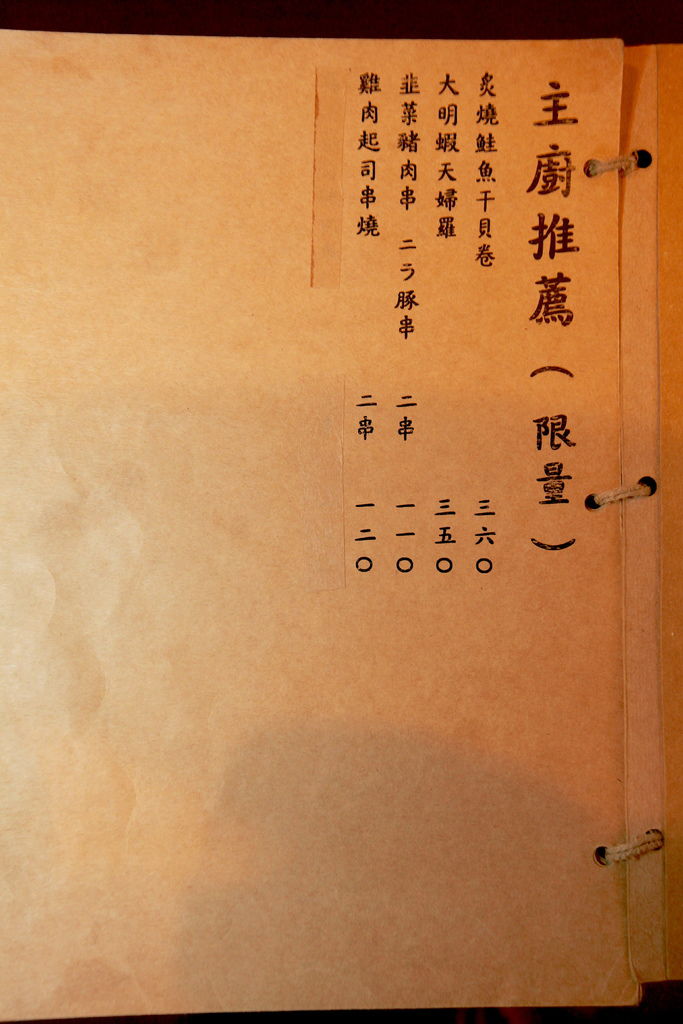 主廚推薦（限量）
炙燒鮭魚干貝卷 三六〇
大明蝦天婦羅 三五〇
韭菜豬肉串 ニラ豚串 二串 一一〇
雞肉起司串燒 二串 一二〇